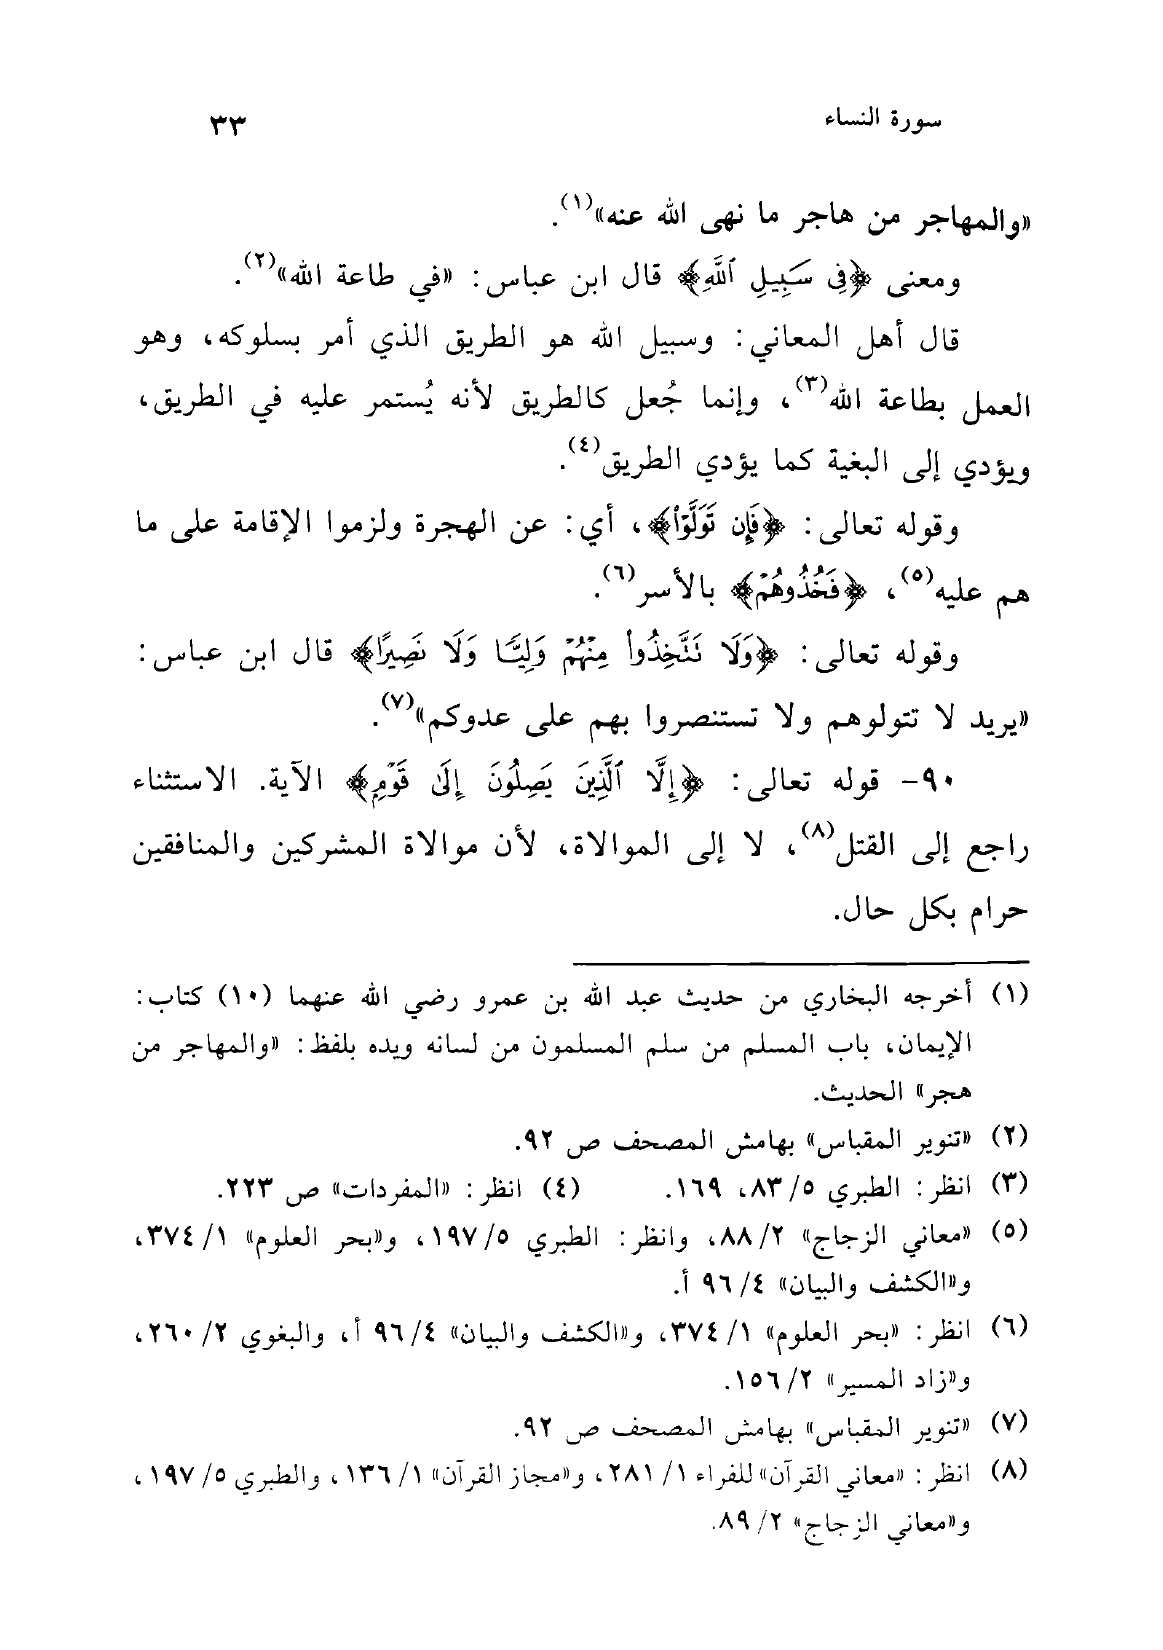 سورة النساء ٣٣
«والمهاجر من هاجر ما نهى الله عنه»(١).
ومعنى ﴿فِي سَبِيلِ ٱللَّهِ﴾ قال ابن عباس: «في طاعة الله»(٢).
قال أهل المعاني: وسبيل الله هو الطريق الذي أمر بسلوكه، وهو
العمل بطاعة الله(٣)، وإنما جُعل كالطريق لأنه يُستمر عليه في الطريق،
ويؤدي إلى البغية كما يؤدي الطريق(٤).
وقوله تعالى: ﴿فَإِن تَوَلَّوْاْ﴾، أي: عن الهجرة ولزموا الإقامة على ما
هم عليه(٥)، ﴿فَخُذُوهُمْ﴾ بالأسر(٦).
وقوله تعالى: ﴿وَلَا تَتَّخِذُواْ مِنْهُمْ وَلِيًّا وَلَا نَصِيرًا﴾ قال ابن عباس:
«يريد لا تتولوهم ولا تستنصروا بهم على عدوكم»(٧).
٩٠- قوله تعالى: ﴿إِلَّا ٱلَّذِينَ يَصِلُونَ إِلَىٰ قَوْمٍ﴾ الآية. الاستثناء
راجع إلى القتل(٨)، لا إلى الموالاة، لأن موالاة المشركين والمنافقين
حرام بكل حال.
(١) أخرجه البخاري من حديث عبد الله بن عمرو رضي الله عنهما (١٠) كتاب:
الإيمان، باب المسلم من سلم المسلمون من لسانه ويده بلفظ: «والمهاجر من
هجر» الحديث.
(٢) «تنوير المقباس» بهامش المصحف ص ٩٢.
(٣) انظر: الطبري ٥/ ٨٣، ١٦٩. (٤) انظر: «المفردات» ص ٢٢٣.
(٥) «معاني الزجاج» ٢/ ٨٨، وانظر: الطبري ٥/ ١٩٧، و«بحر العلوم» ١/ ٣٧٤،
و«الكشف والبيان» ٤/ ٩٦ أ.
(٦) انظر: «بحر العلوم» ١/ ٣٧٤، و«الكشف والبيان» ٤/ ٩٦ أ، والبغوي ٢/ ٢٦٠،
و«زاد المسير» ٢/ ١٥٦.
(٧) «تنوير المقباس» بهامش المصحف ص ٩٢.
(٨) انظر: «معاني القرآن» للفراء ١/ ٢٨١، و«مجاز القرآن» ١/ ١٣٦، والطبري ٥/ ١٩٧،
و«معاني الزجاج» ٢/ ٨٩.